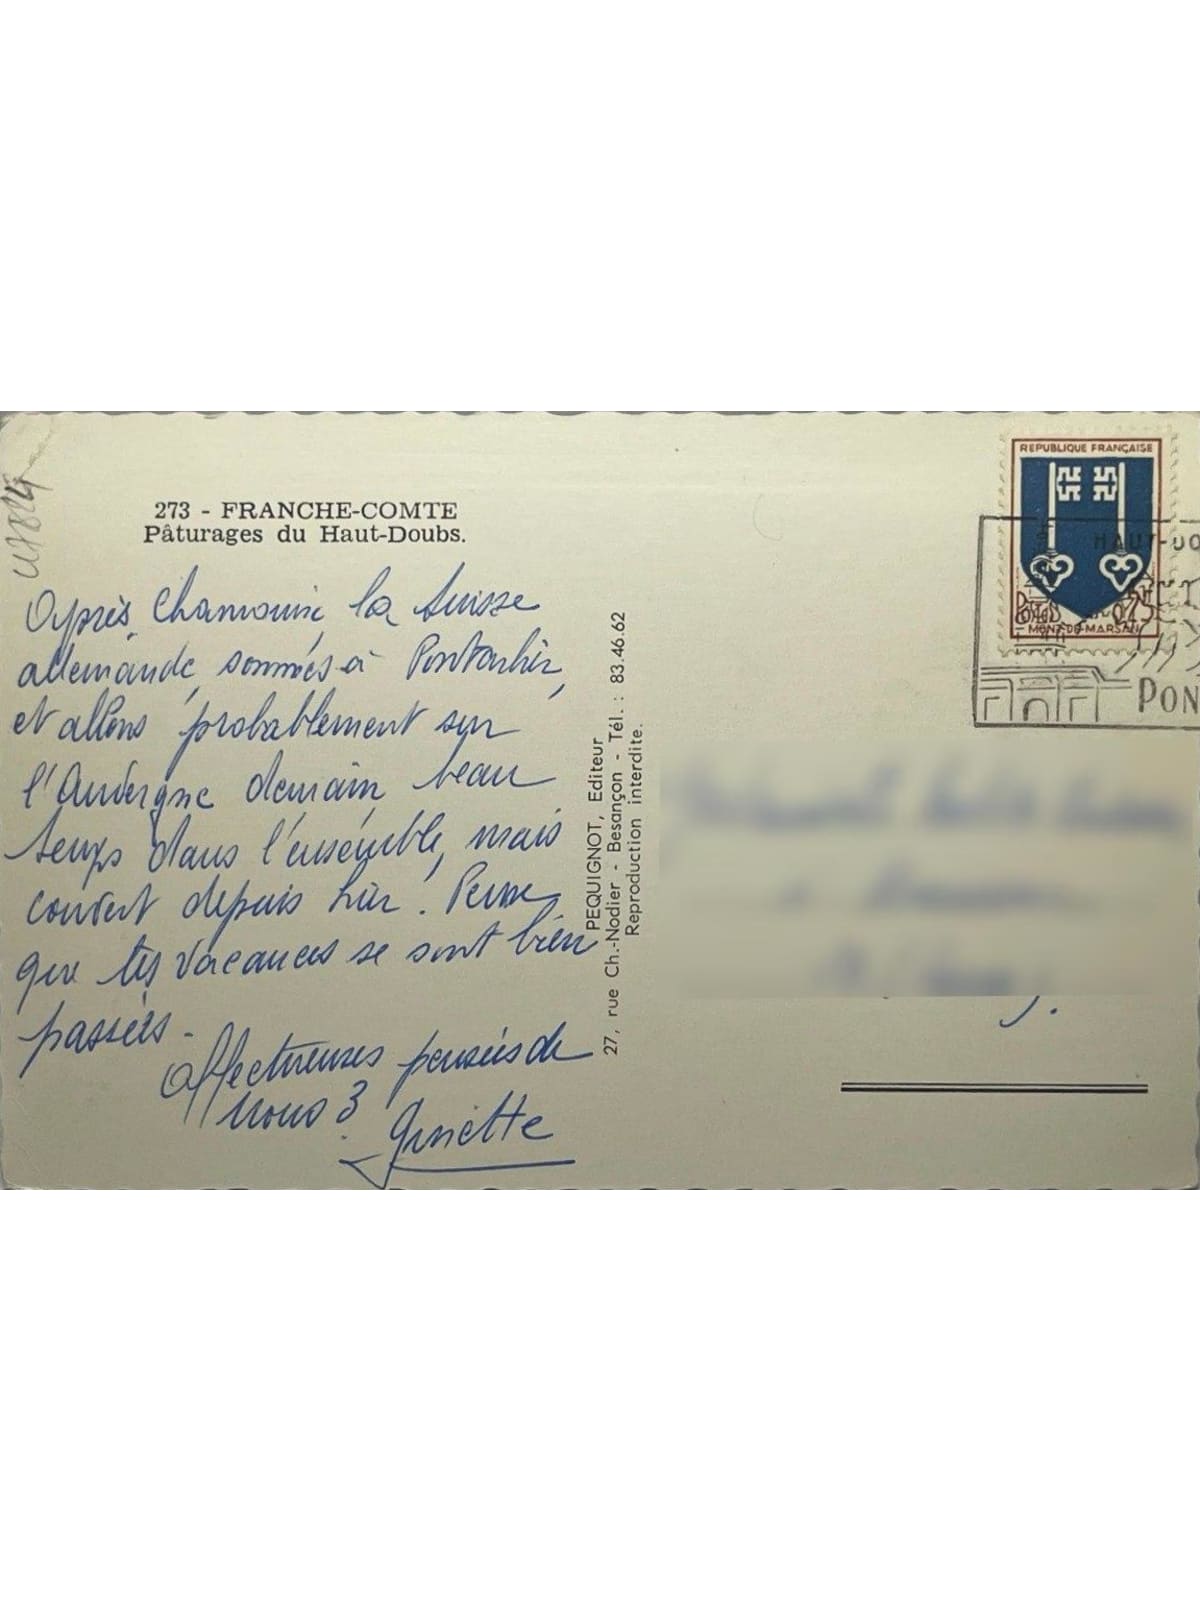 273 - FRANCHE-COMTE
Pâturages du Haut-Doubs.
Après Chamonix la Suisse
allemande, sommes à Pontarlier,
et allons probablement sur
l'Auvergne demain beau
temps dans l'ensemble, mais
couvert depuis hier. Pense
que tes vacances se sont bien
passées -
Affectueuses pensées de
nous 3.
Ginette
PEQUIGNOT, Editeur
27, rue Ch.-Nodier - Besançon - Tél. : 83.46.62
Reproduction interdite.
REPUBLIQUE FRANÇAISE
POSTES 0,25
MONT-DE-MARSAN
HAUT-DO
PON